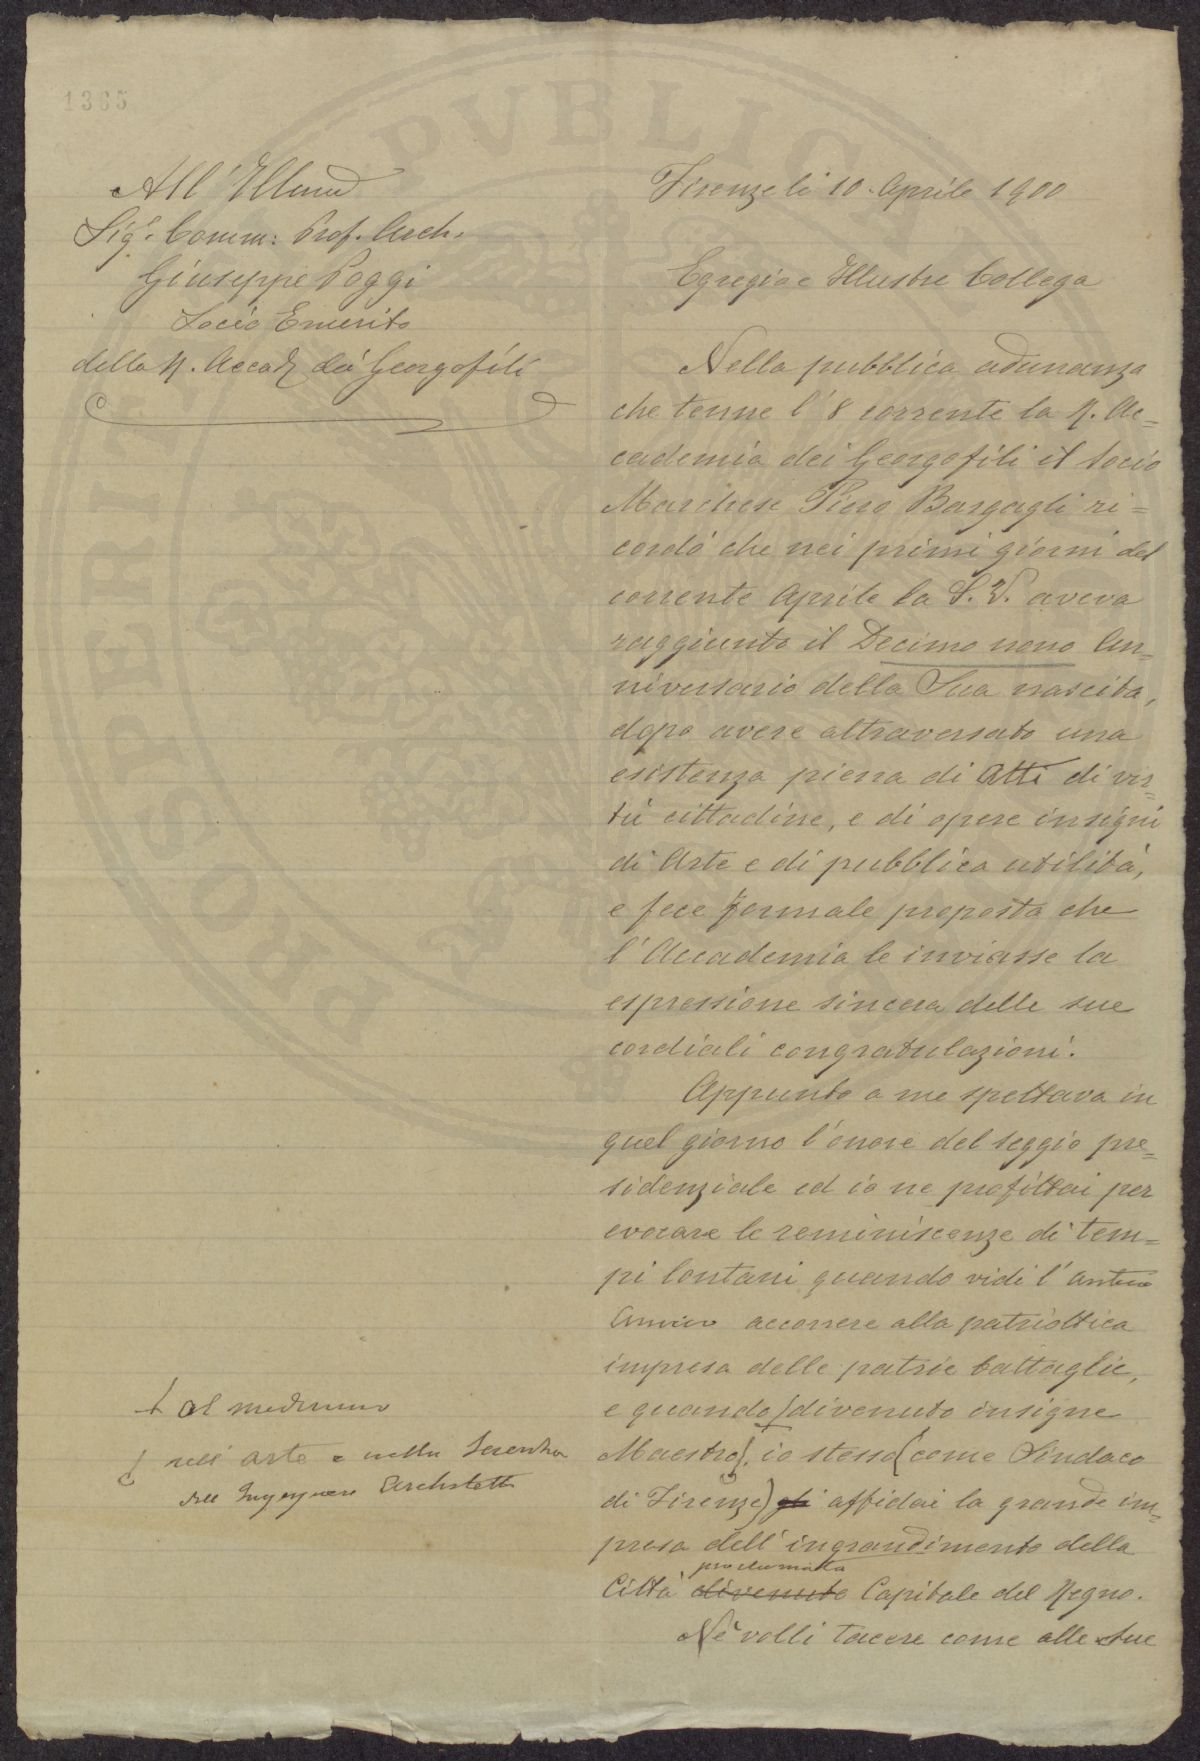 1365
PVBLICA
PROSPERITATI
All' Illmo
Sig.r Comm: Prof. Arch.
Giuseppe Poggi
Socio Emerito
della R. Accad. dei Georgofili
Firenze li 10. Aprile 1900
Egregio e Illustre Collega
Nella pubblica adunanza
che tenne l'8 corrente la R. Ac=
cademia dei Georgofili il Socio
Marchese Piero Bargagli ri=
cordò che nei primi giorni del
corrente Aprile la S. V. aveva
raggiunto il Decimo nono An=
niversario della Sua nascita,
dopo avere attraversato una
esistenza piena di Atti di vir=
tù cittadine, e di opere insigni
di Arte e di pubblica utilità,
e fece formale proposta che
l'Accademia le inviasse la
espressione sincera delle sue
cordiali congratulazioni.
Appunto a me spettava in
quel giorno l'onore del seggio pre=
sidenziale ed io ne profittai per
evocare le reminiscenze di tem=
pi lontani quando vidi l'antico
Amico accorrere alla patriottica
impresa delle patrie battaglie,
e quando divenuto insigne
Maestro, io stesso (come Sindaco
di Firenze) gli affidai la grande im=
presa dell'ingrandimento della
proclamata
Città divenuta Capitale del Regno.
Nè volli tacere come alle Sue
al medesimo
nell'arte e nella Scienza
dell'Ingegnere Architetto